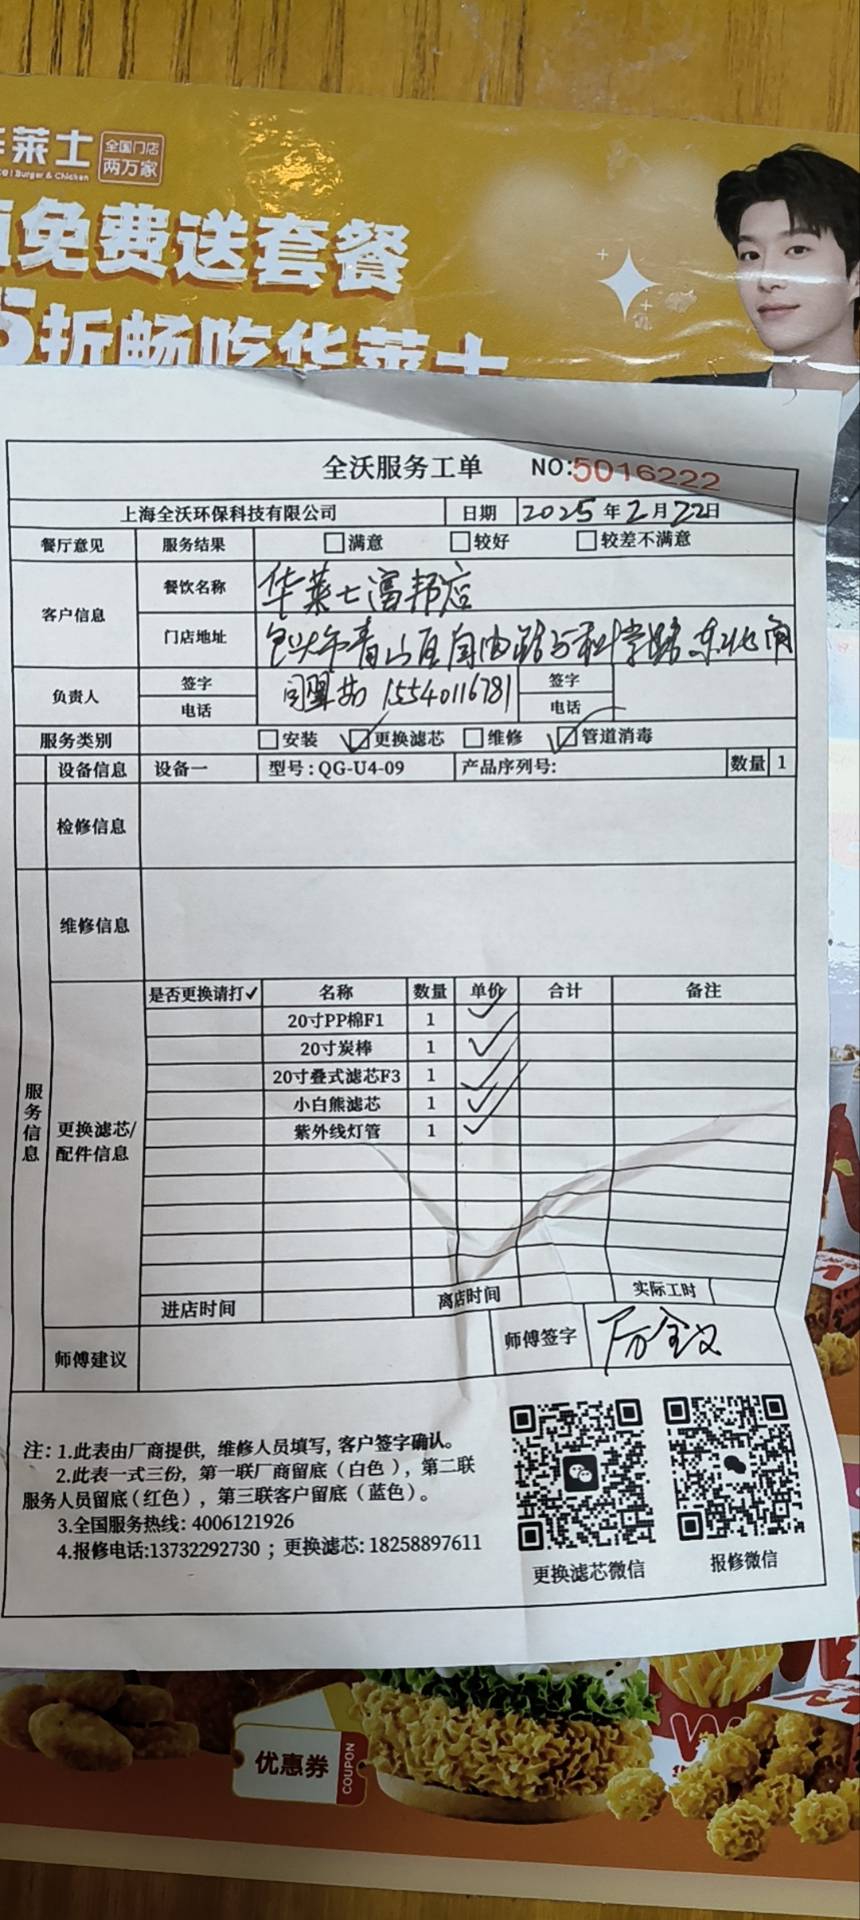 莱士 全国门店 两万家
Burger & Chicken
免费送套餐
5折畅吃华莱士
全沃服务工单 NO:5016222
上海全沃环保科技有限公司 日期 2025年2月22日
餐厅意见 服务结果 □满意 □较好 □较差不满意
客户信息 餐饮名称 华莱士富邦店
门店地址 包头市青山区自由路与科学路东北角
负责人 签字 签字
电话 15540116781 电话
服务类别 □安装 ☑更换滤芯 □维修 ☑管道消毒
设备信息 设备一 型号:QG-U4-09 产品序列号: 数量 1
检修信息
维修信息
服务信息
更换滤芯/配件信息
是否更换请打✓ 名称 数量 单价 合计 备注
20寸PP棉F1 1 ✓
20寸炭棒 1 ✓
20寸叠式滤芯F3 1 ✓
小白熊滤芯 1 ✓
紫外线灯管 1 ✓
进店时间 离店时间 实际工时
师傅建议 师傅签字
注:1.此表由厂商提供,维修人员填写,客户签字确认。
2.此表一式三份,第一联厂商留底(白色),第二联
服务人员留底(红色),第三联客户留底(蓝色)。
3.全国服务热线:4006121926
4.报修电话:13732292730;更换滤芯:18258897611
更换滤芯微信 报修微信
优惠券 COUPON